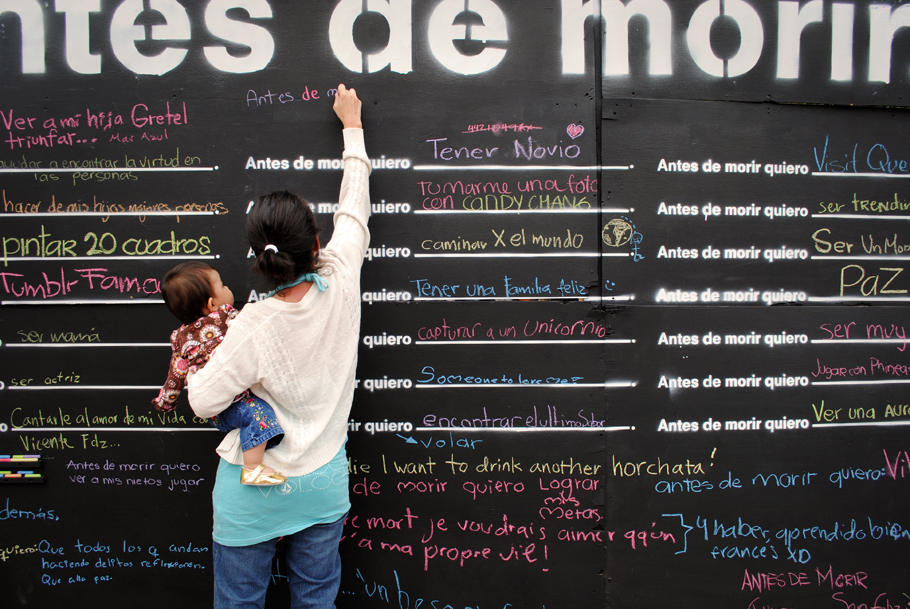 ntes de morir
Antes de m
Ver a mi hija Gretel
triunfar... Mar Azul
ayudar a encontrar la virtud en
las personas
hacer de mis hijos mejores personas
pintar 20 cuadros
Tumblr Fama
ser mamá
ser actriz
Cantarle al amor de mi vida co
Vicente Fdz...
Antes de morir quiero
ver a mis nietos jugar
demás.
quiero: Que todos los q andan
haciendo delitos reflexionen.
Que alla paz.
Antes de morir quiero Tener Novio
quiero tomarme una foto
con CANDY CHANG
quiero caminar X el mundo
quiero Tener una familia feliz
quiero capturar a un Unicornio
quiero Someone to love me
quiero encontrar el ultimo Sabor
volar
die I want to drink another horchata!
de morir quiero Lograr
mis
Metas.
mort je voudrais aimer
a ma propre vie!
Antes de morir quiero Visit Que
Antes de morir quiero ser trendin
Antes de morir quiero Ser Un Mo
Antes de morir quiero PaZ
Antes de morir quiero ser muy
Antes de morir quiero Jugar con Phinea
Antes de morir quiero Ver una Auro
antes de morir quiero: Vi
y haber aprendido bien
francés XD
ANTES DE MORIR
un beso